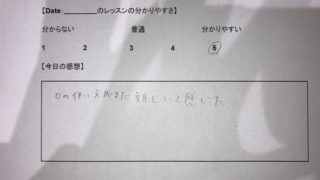 【Date：________のレッスンの分かりやすさ】
分からない 普通 分かりやすい
1 2 3 4 5
【今日の感想】
口の使い方がまだ難しいと感じた